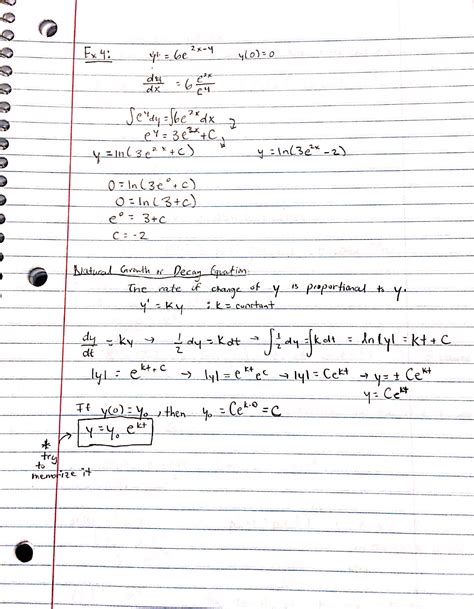 Ex 4: y' = 6e^{2x-y} y(0)=0
dy/dx = 6 e^{2x}/e^y
∫e^y dy = ∫6e^{2x} dx
e^y = 3e^{2x} + C
y = ln(3e^{2x} + C) y = ln(3e^{2x} - 2)
0 = ln(3e^0 + C)
0 = ln(3 + C)
e^0 = 3 + C
C = -2
Natural Growth or Decay Equation:
The rate of change of y is proportional to y.
y' = Ky : k = constant
dy/dt = Ky → 1/2 dy = K dt → ∫1/2 dy = ∫K dt → ln|y| = Kt + C
|y| = e^{kt+C} → |y| = e^{kt} e^C → |y| = Ce^{kt} → y = ± Ce^{kt}
y = Ce^{kt}
If y(0) = y₀, then y₀ = Ce^{k·0} = C
y = y₀ e^{kt}
*
try
to
memorize it